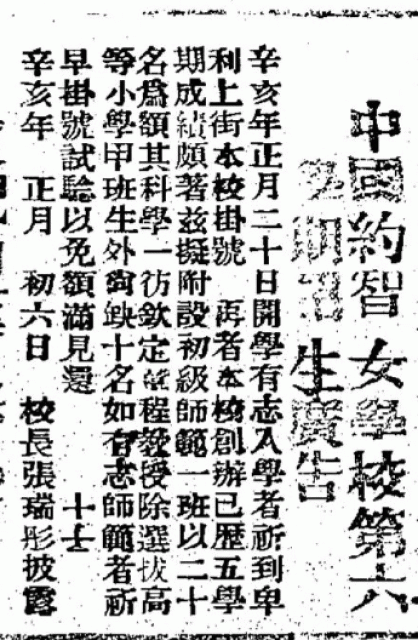 中國約智女學校第六
學期招生廣告
辛亥年正月二十日開學有志入學者祈到卑
利上街本校掛號 再者本校創辦已歷五學
期成績頗著茲擬附設初級師範一班以二十
名爲額其科學一彷欽定章程敎授除選拔高
等小學甲班生外尙缺十名如有志師範者祈
早掛號試驗以免額滿見還 十七
辛亥年 正月 初六日 校長張瑞彤披露